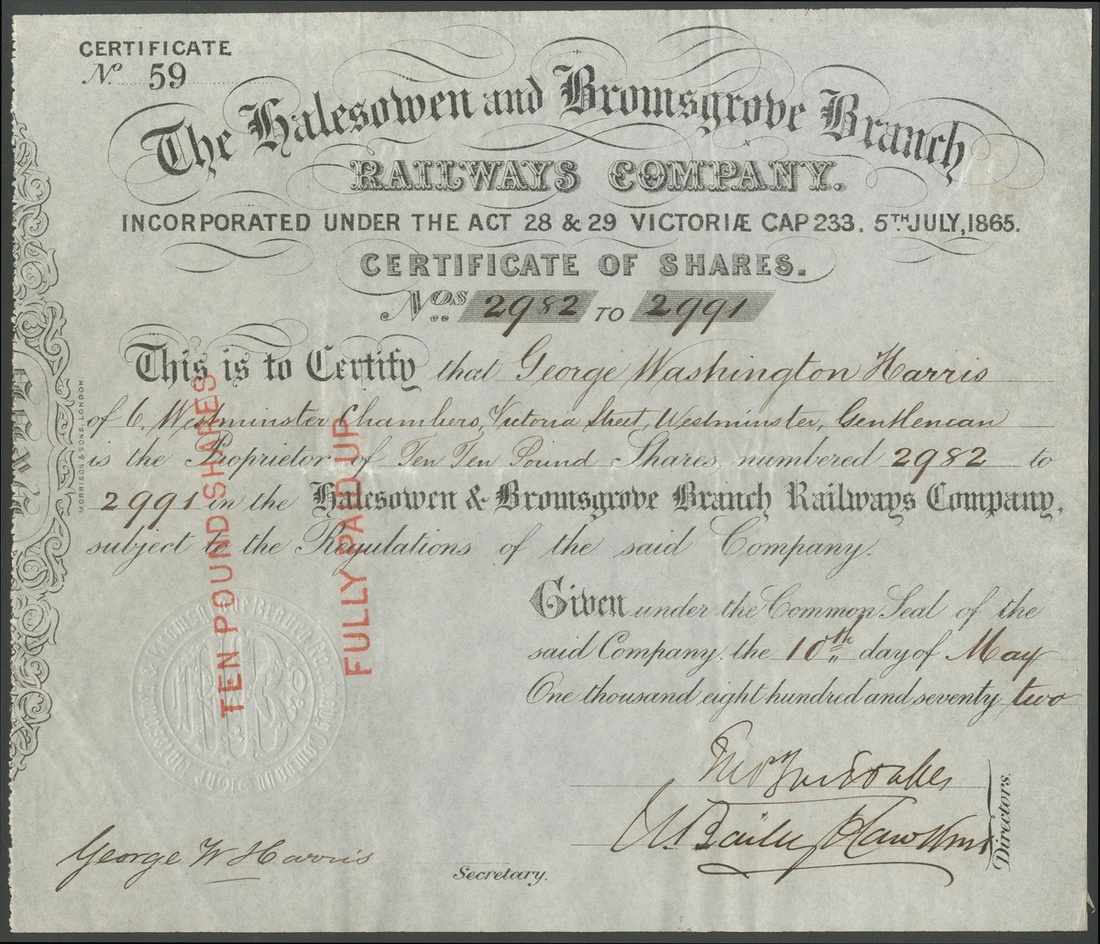 CERTIFICATE
No 59
The Halesowen and Bromsgrove Branch
RAILWAYS COMPANY.
INCORPORATED UNDER THE ACT 28 & 29 VICTORIÆ CAP 233. 5TH JULY, 1865.
CERTIFICATE OF SHARES.
Nos. 2982 TO 2991
This is to Certify that George Washington Harris
of 6, Westminster Chambers, Victoria Street, Westminster, Gentleman
is the Proprietor of Ten Ten Pound Shares, numbered 2982 to
2991 in the Halesowen & Bromsgrove Branch Railways Company,
subject to the Regulations of the said Company.
TEN POUND SHARES
FULLY PAID UP
MORRISON & SONS, LONDON.
Given under the Common Seal of the
said Company, the 10th day of May
One thousand eight hundred and seventy two
W. Baily Hawkins
Directors.
George W Harris
Secretary.